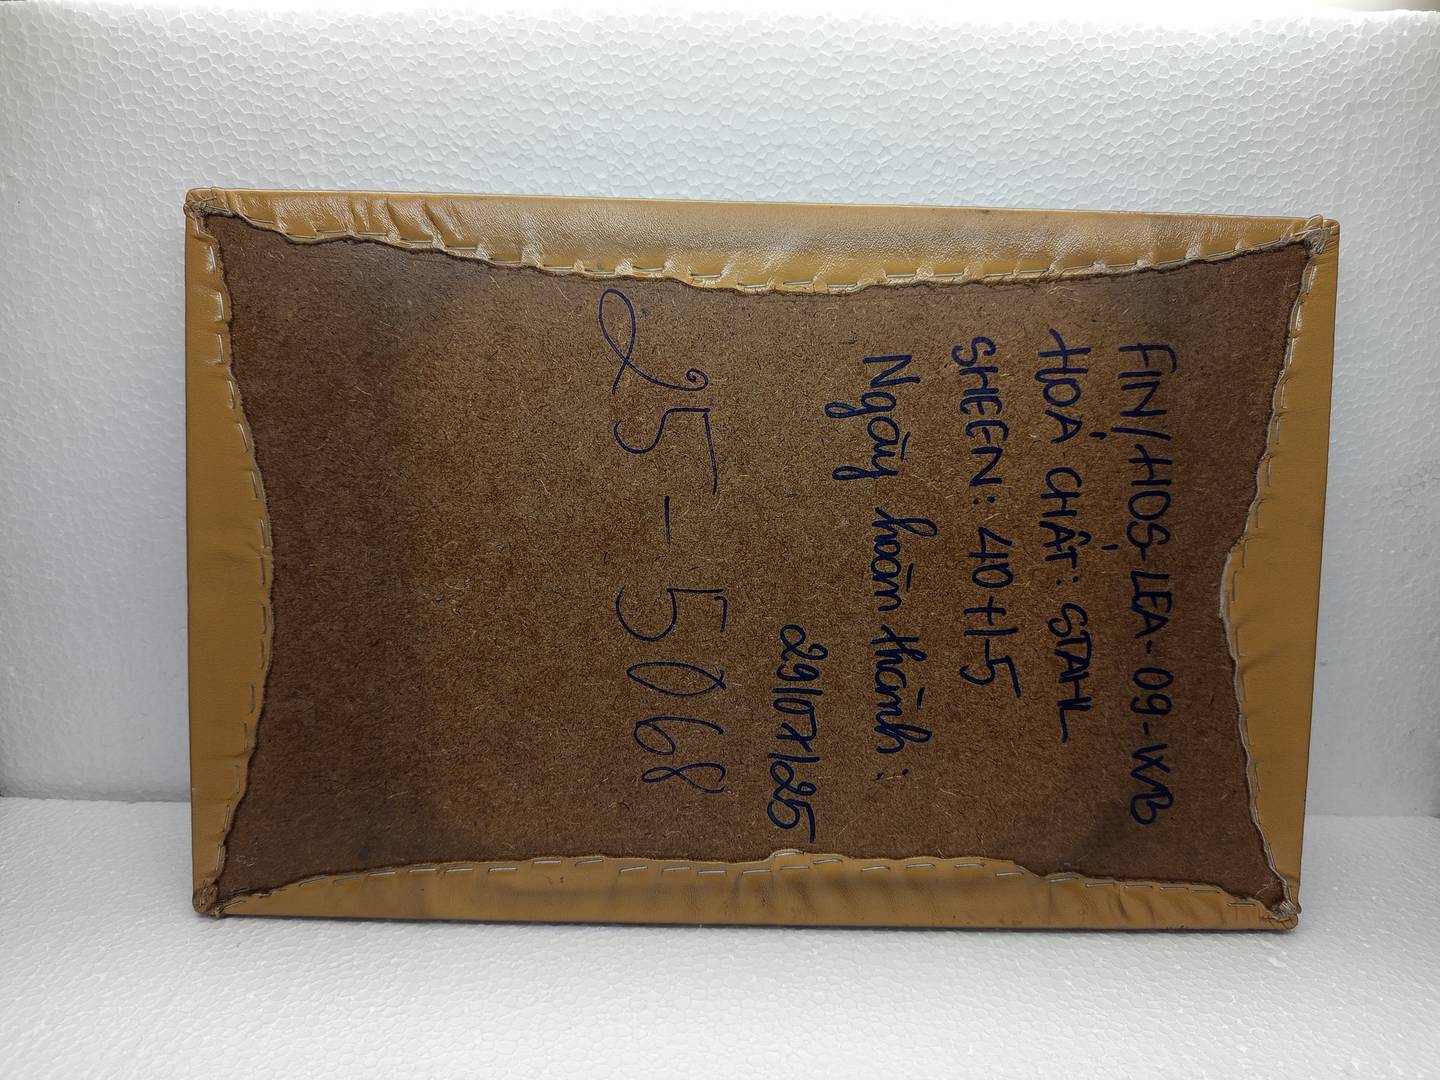 FIN/HDS-LEA-09-WB
HOÁ CHẤT: STAHL
SHEEN: 40+/-5
Ngày hoàn thành:
29/07/25
25-5068